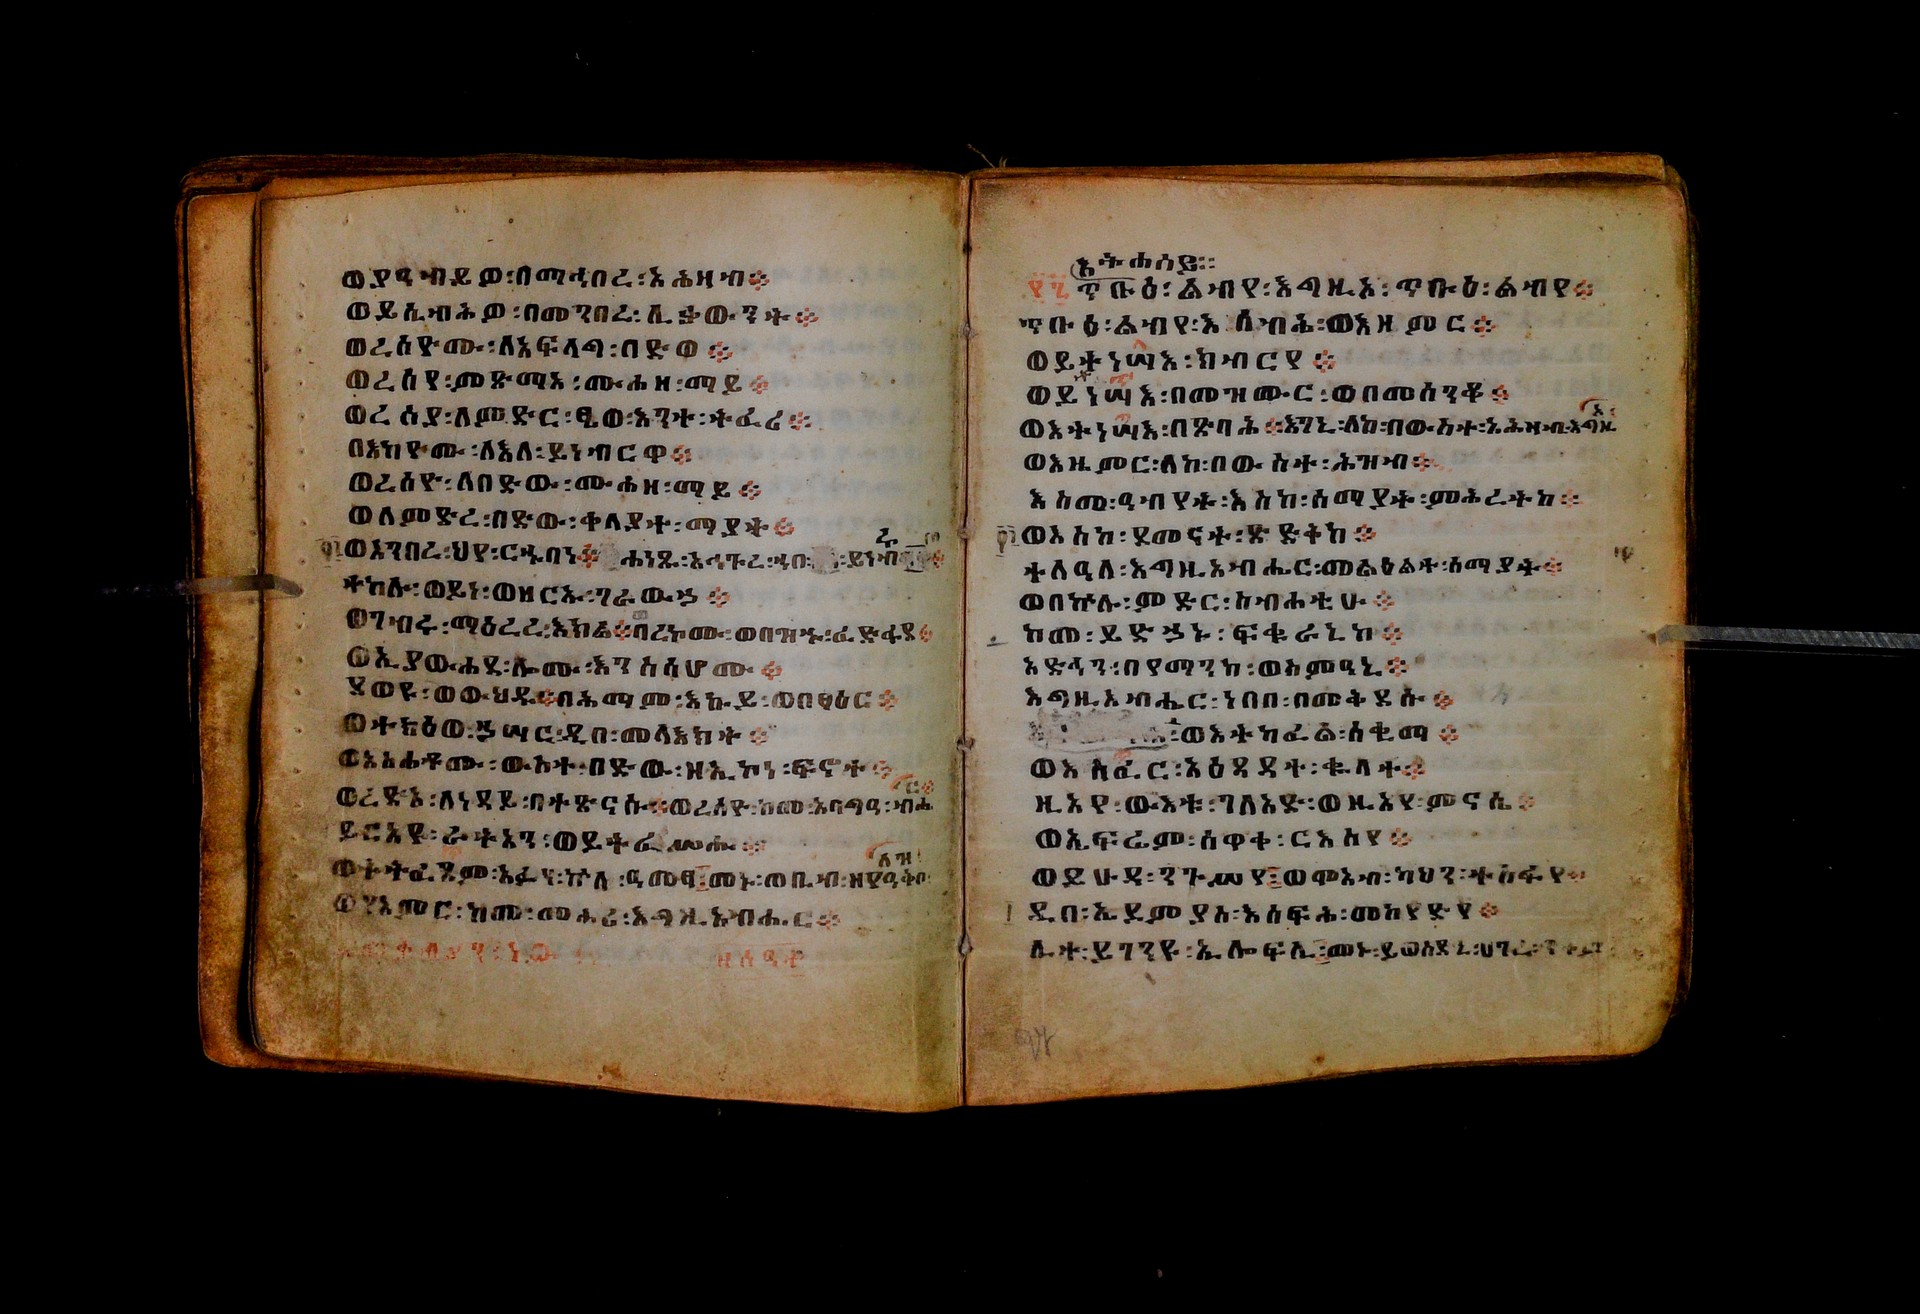 ወያዓብይዎ፡በማኅበረ፡አሕዛብ፨
ወይሴብሕዎ፡በመንበረ፡ሊቃውንት፨
ወረሰዮሙ፡ለአፍላግ፡በድወ፨
ወረሰየ፡ምጽማእ፡ሙሐዘ፡ማይ፨
ወረሰያ፡ለምድር፡ፄው፡እንተ፡ትፈሪ፨
በእከዮሙ፡ለእለ፡ይነብርዋ፨
ወረሰዮ፡ለበድው፡ሙሐዘ፡ማይ፨
ወለምድረ፡በድው፡ቀላያተ፡ማያት፨
ወአንበረ፡ህየ፡ርኁበነ፨ሐነጹ፡አህጉረ፡ኀበ፡ይነብሩ
ተከሉ፡ወይነ፡ወዘርኡ፡ገራውኃ፨
ወገብሩ፡ማዕረረ፡እክል፨በረኮሙ፡ወበዝኁ፡ፈድፋደ፨
ወኢያውሐደ፡ሎሙ፡እንስሳሆሙ፨
ደወዩ፡ወውህዱ፨በሕማም፡እኩይ፡ወበፃዕር፨
ወተክዕወ፡ኃሣር፡ዲበ፡መላእክት፨
ወአስሐቶሙ፡ውስተ፡በድው፡ዘኢኮነ፡ፍኖተ፨
ወረድኦ፡ለነዳይ፡በተጽናሱ፨ወረሰዮ፡ከመ፡አባግዓ፡ብሔ
ር፨
ይርአዩ፡ራትአን፡ወይትፈሥሑ፨
ወትትፈጸም፡አፈ፡ኵላ፡ዓመፃ፡መኑ፡ጠቢብ፡ዘየዓቅቦ
ለዝ
ወያአምር፡ከመ፡መሐሪ፡እግዚአብሔር፨
ጥቡዕ፡ልብየ፡እግዚኦ፡ጥቡዕ፡ልብየ፨
ጥቡዕ፡ልብየ፡እሴብሕ፡ወእዘምር፨
ወይትነሣእ፡ክብርየ፨
ወይነሣእ፡በመዝሙር፡ወበመሰንቆ፨
ወእትነሣእ፡በጽባሕ፨እገኒ፡ለከ፡በውስተ፡አሕዛብ፡እግዚ
ኦ፡
ወእዜምር፡ለከ፡በውስተ፡ሕዝብ፨
እስመ፡ዓብየት፡እስከ፡ሰማያት፡ምሕረትከ፨
ወእስከ፡ደመናት፡ጽድቅከ፨
ተለዓለ፡እግዚአብሔር፡መልዕልተ፡ሰማያት፨
ወበኵሉ፡ምድር፡ስብሐቲሁ፨
ከመ፡ይድኃኑ፡ፍቁራኒከ፨
አድኅን፡በየማንከ፡ወስምዓኒ፨
እግዚአብሔር፡ነበበ፡በመቅደሱ፨
ወእትካፈል፡ሰቂማ፨
ወእሳፈር፡አዕጻዳተ፡ቄላት፨
ዚአየ፡ውእቱ፡ገለአድ፡ወዚአየ፡ምናሴ፨
ወኤፍሬም፡ጸዋቱ፡ርእስየ፨
ወይሁዳ፡ንጉሥየ፨ወሞአብ፡ካህን፡ተስፋየ፨
ዲበ፡ኤዶምያስ፡እሰፍሕ፡መከየድየ፨
ሊተ፡ይገንዩ፡ኢሎፍሊ፡መኑ፡ይወስደኒ፡ሀገረ፡